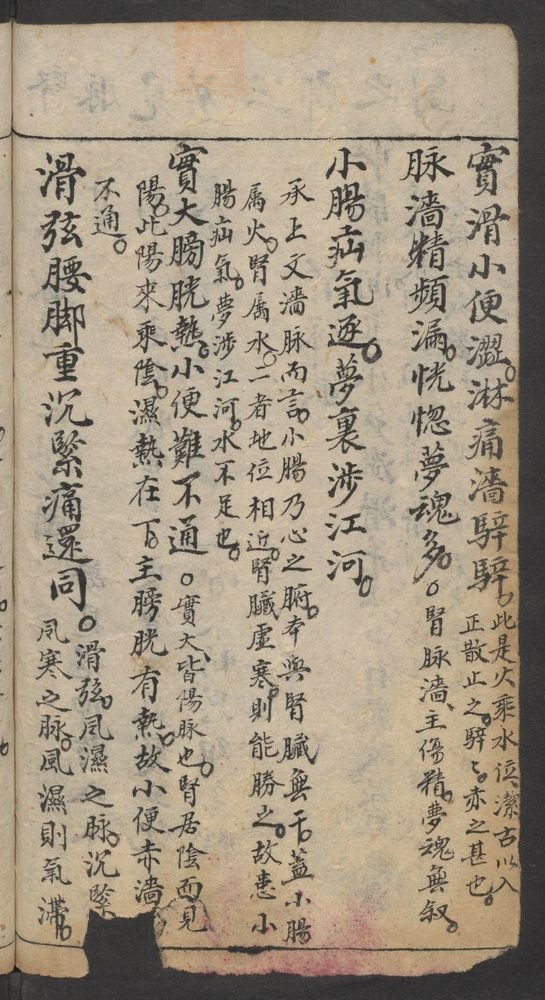 實滑小便澀淋痛濇騂騂此是火乘水位潔古以八
正散止之騂〻赤之甚也
脉濇精頻漏恍惚夢魂多腎脉濇主傷精夢魂無叙
小腸疝氣逐夢裏涉江河
承上文濇脉而言小腸乃心之腑本與腎臟無干蓋小腸
属火腎属水二者地位相近腎臟虛寒則能勝之故患小
腸疝氣夢涉江河水不足也
實大膀胱熱小便難不通實大皆陽脉也腎居陰而見
陽此陽來乘陰濕熱在下主膀胱有熱故小便赤濇
不通
滑弦腰脚重沉緊痛還同滑弦風濕之脉沉緊
風寒之脉風濕則氣滯